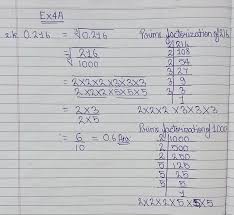 Ex4A
0.216 = ∛0.216
= ∛216
1000
= 2×2×2×3×3×3
2×2×2×5×5×5
= 2×3
2×5
= 6 = 0.6 Ans
10
Prime factorization of 216
2 216
2 108
2 54
3 27
3 9
3 3
1
2×2×2×3×3×3
Prime factorization of 1000
2 1000
2 500
2 250
5 125
5 25
5 5
1
2×2×2×5×5×5